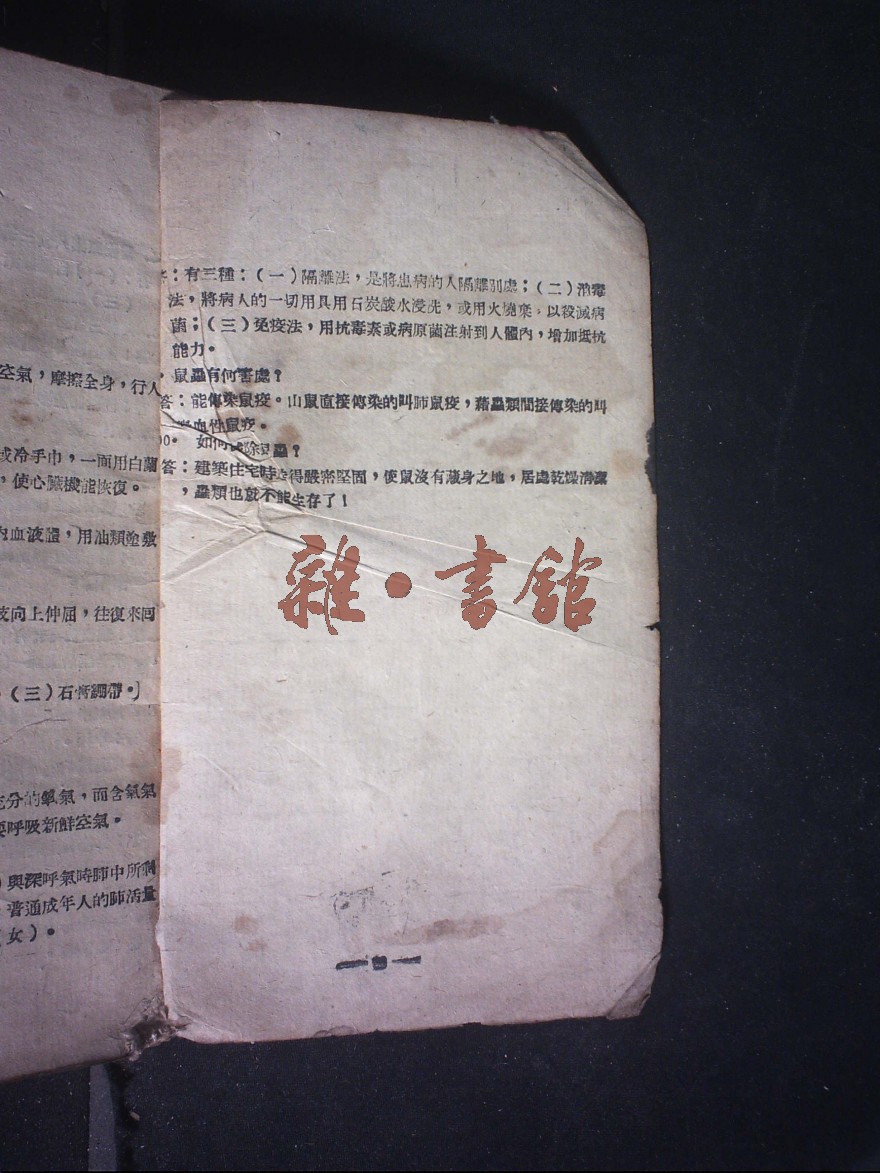 空氣，摩擦全身，行人
或冷手巾，一面用白蘭
，使心臟機能恢復。
內血液體，用油類塗敷
支向上伸屈，往復來回
（三）石膏綳帶。
充分的氧氣，而含氧氣
要呼吸新鮮空氣。
與深呼氣時肺中所剩
普通成年人的肺活量
女）。
：有三種：（一）隔離法，是將患病的人隔離別處；（二）消毒
法，將病人的一切用具用石炭酸水浸洗，或用火燒棄，以殺滅病
菌；（三）免疫法，用抗毒素或病原菌注射到人體內，增加抵抗
能力。
鼠蟲有何害處？
答：能傳染鼠疫。由鼠直接傳染的叫肺鼠疫，藉蟲類間接傳染的叫
血性鼠疫。
00。 如何 除 蟲？
答：建築住宅時 得嚴密堅固，使鼠沒有藏身之地，居處乾燥清潔
，蟲類也就不能生存了！
雜·書舘